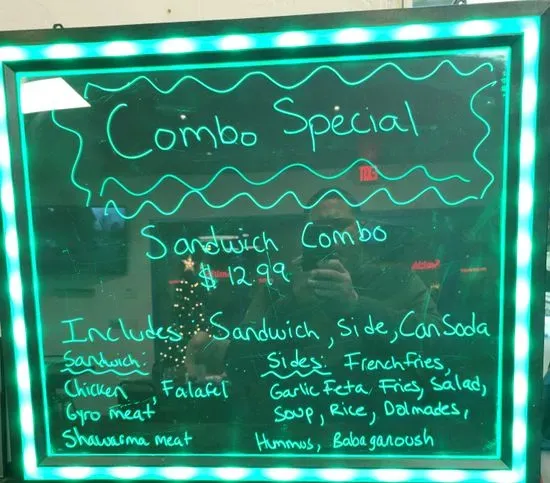 Combo Special
Sandwich Combo
$ 12.99
Includes Sandwich, Side, Can Soda
Sandwich:
Chicken, Falafel
Gyro meat
Shawarma meat
Sides: French fries,
Garlic Feta Fries, Salad,
Soup, Rice, Dolmades,
Hummus, Babaganoush